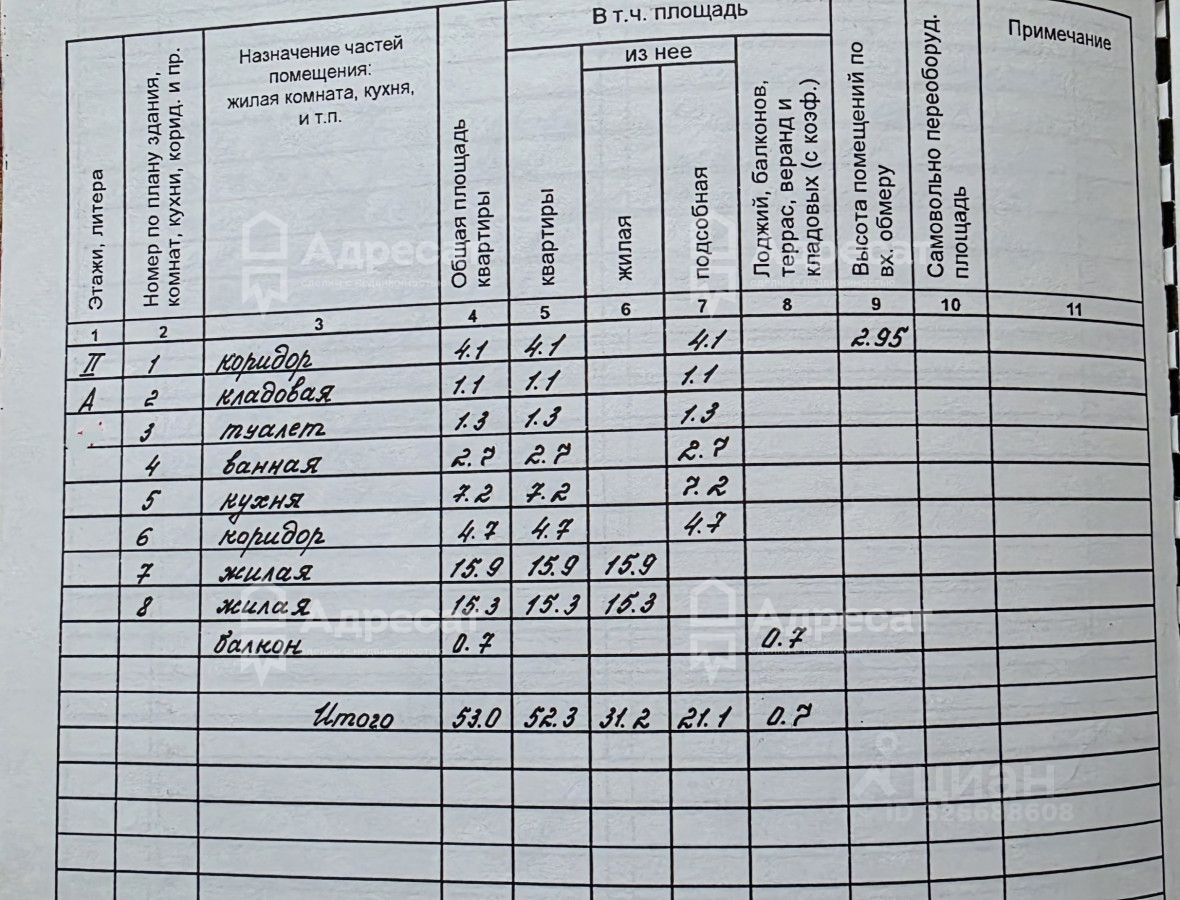 Этажи, литера
Номер по плану здания,
комнат, кухни, корид. и пр.
Назначение частей
помещения:
жилая комната, кухня,
и т.п.
Общая площадь
квартиры
В т.ч. площадь
квартиры
из нее
жилая
подсобная
Лоджий, балконов,
террас, веранд и
кладовых (с коэф.)
Высота помещений по
вх. обмеру
Самовольно переоборуд.
площадь
Примечание
1 2 3 4 5 6 7 8 9 10 11
II 1 коридор 4.1 4.1 4.1 2.95
А 2 кладовая 1.1 1.1 1.1
3 туалет 1.3 1.3 1.3
4 ванная 2.7 2.7 2.7
5 кухня 7.2 7.2 7.2
6 коридор 4.7 4.7 4.7
7 жилая 15.9 15.9 15.9
8 жилая 15.3 15.3 15.3
балкон 0.7 0.7
Итого 53.0 52.3 31.2 21.1 0.7
Адресат
сделки с недвижимостью
Адресат
сделки с недвижимостью
Адресат
сделки с недвижимостью
Адресат
сделки с недвижимостью
циан
ID 328688608